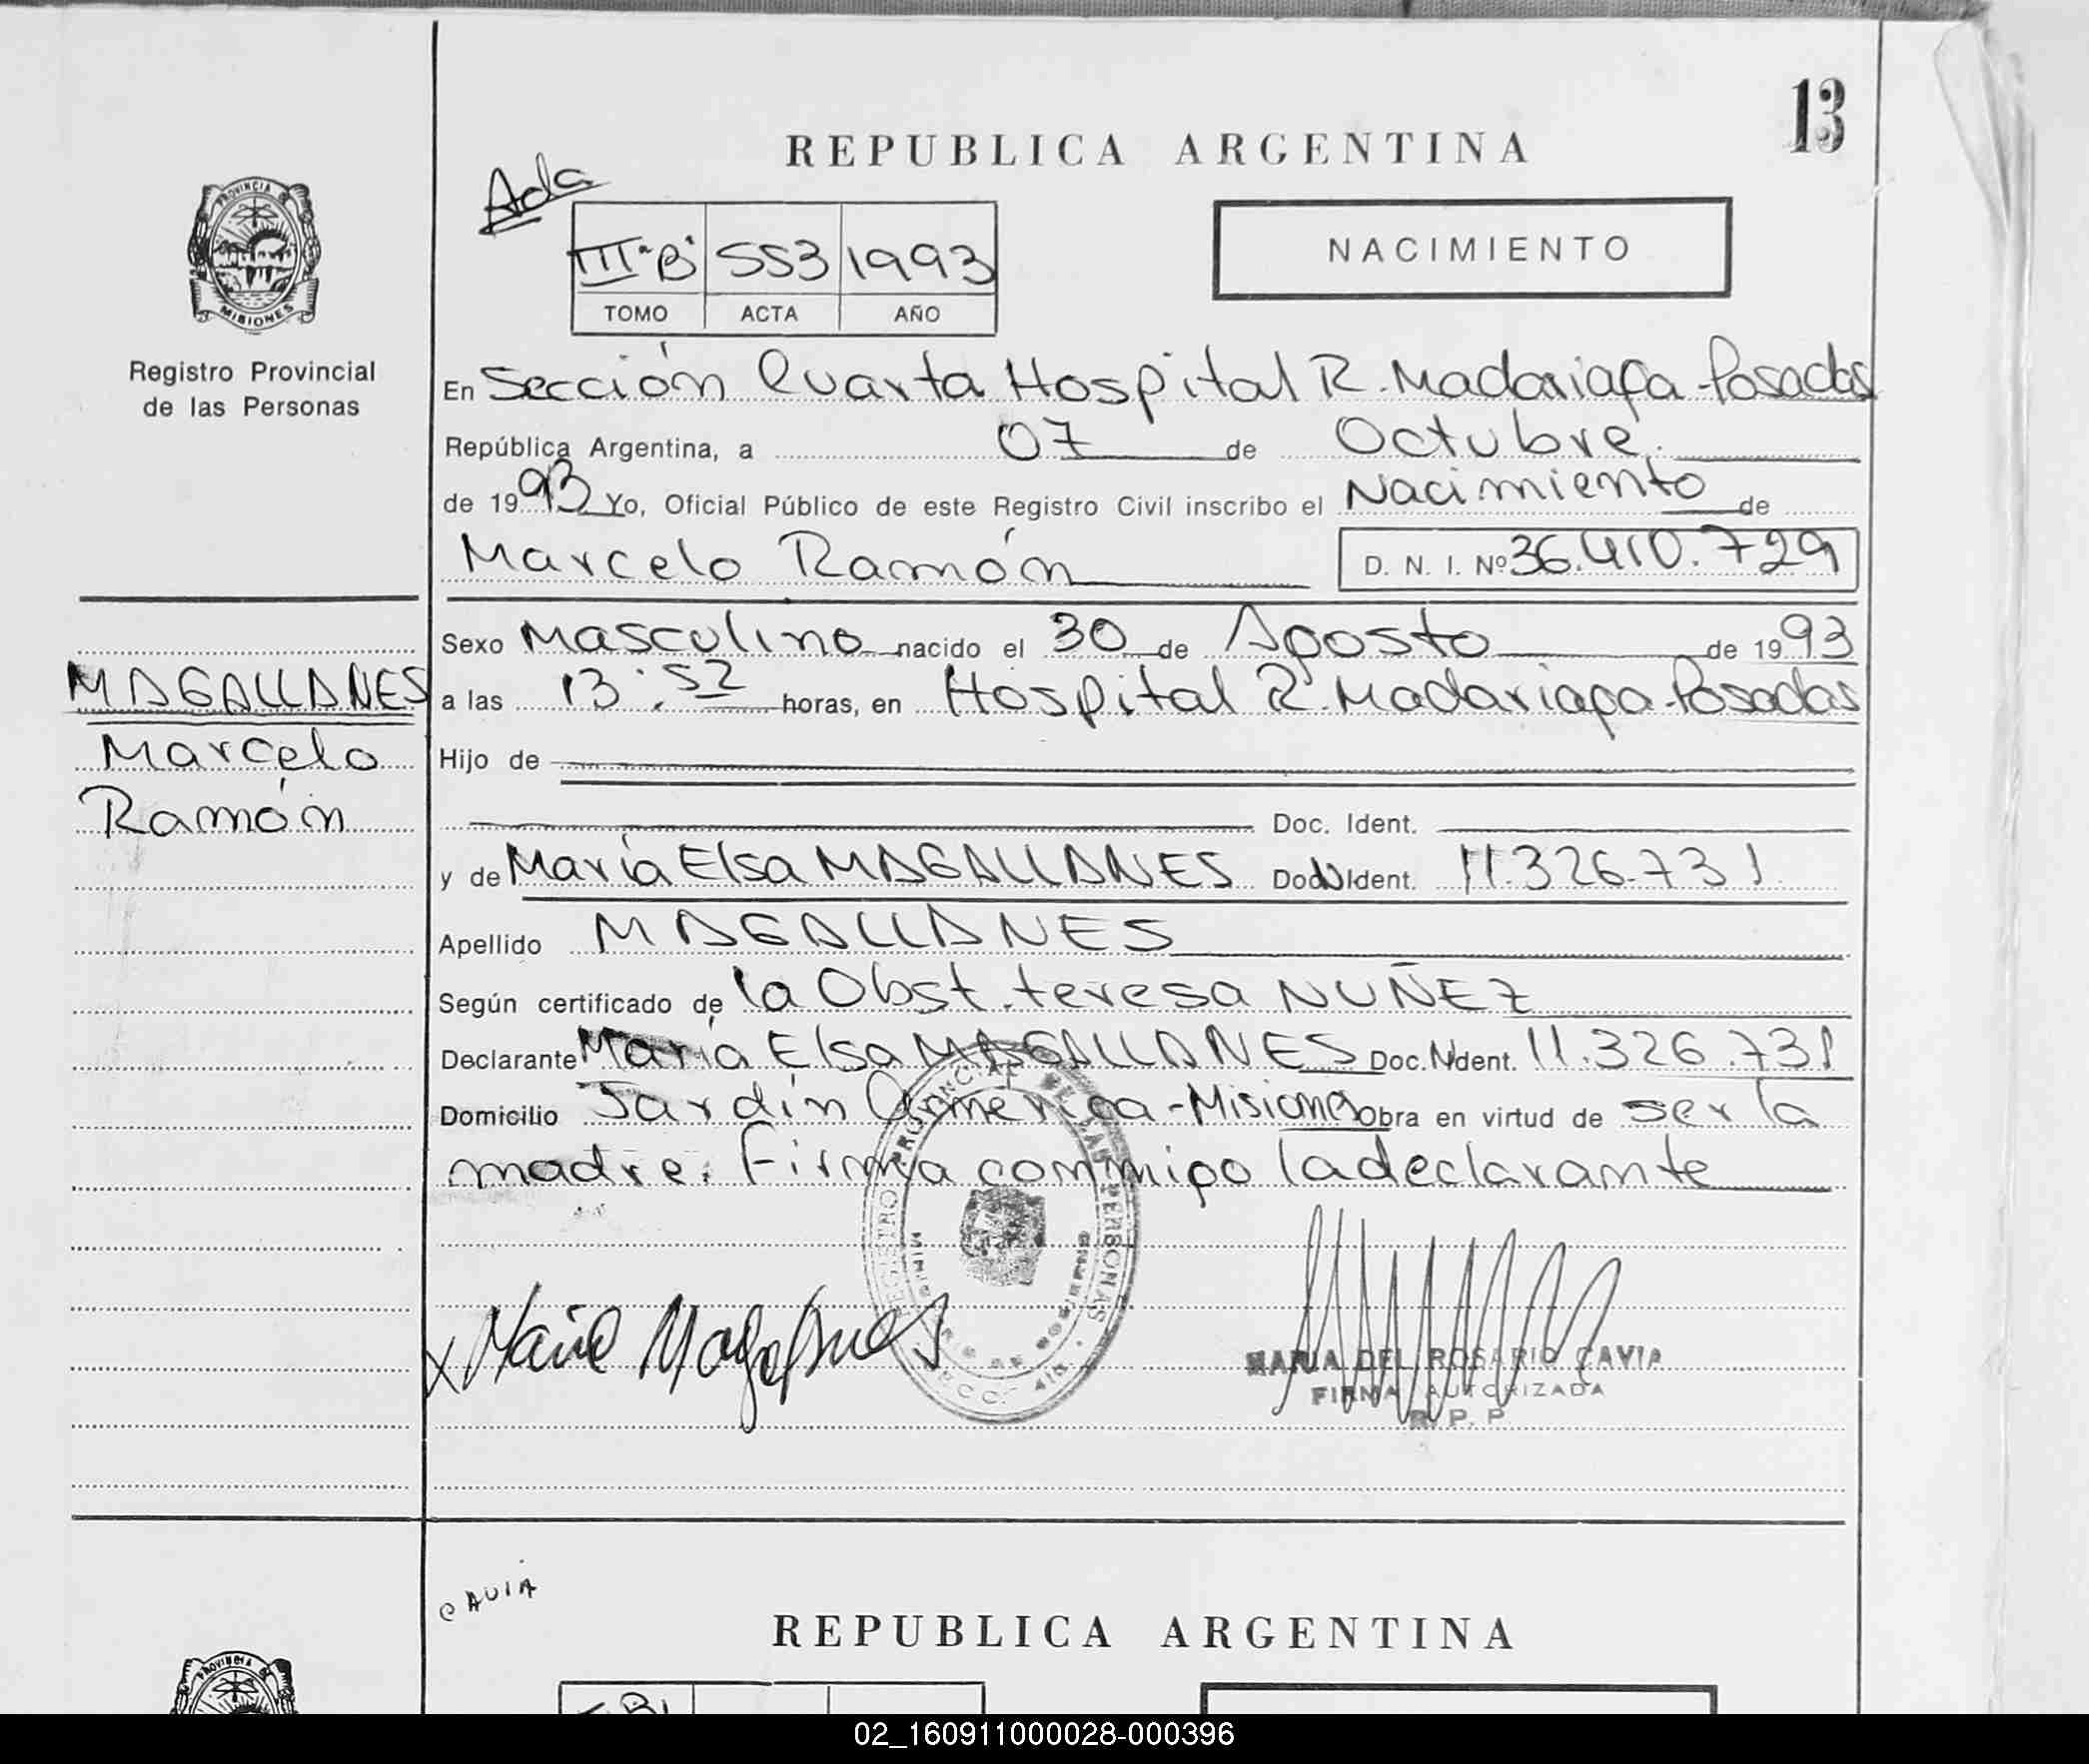 13
REPUBLICA ARGENTINA
Ada
NACIMIENTO
IIIª"B" 553 1993
TOMO ACTA AÑO
PROVINCIA DE
MISIONES
Registro Provincial
de las Personas
En Sección Cuarta Hospital R. Madariaga-Posadas
República Argentina, a 07 de Octubre.
de 1993 Yo, Oficial Público de este Registro Civil inscribo el Nacimiento de
Marcelo Ramón D. N. I. Nº 36.410.729
Sexo Masculino nacido el 30 de Agosto de 1993
MAGALLANES
Marcelo
Ramón
a las 13:52 horas, en Hospital R. Madariaga-Posadas
Hijo de
Doc. Ident.
y de María Elsa MAGALLANES Doc. Ident. 11.326.731
Apellido MAGALLANES
Según certificado de la Obst. teresa NUÑEZ
Declarante María Elsa MAGALLANES Doc. Ident. 11.326.731
Domicilio Jardín América-Misiones Obra en virtud de ser la
madre. Firma conmigo la declarante
REGISTRO PROVINCIAL DE LAS PERSONAS
MINISTERIO DE GOBIERNO
SECC. 4ta.
x Maria Magallanes
MARIA DEL ROSARIO CAVIA
FIRMA AUTORIZADA
R. P. P
CAVIA
REPUBLICA ARGENTINA
PROVINCIA DE
02_160911000028-000396